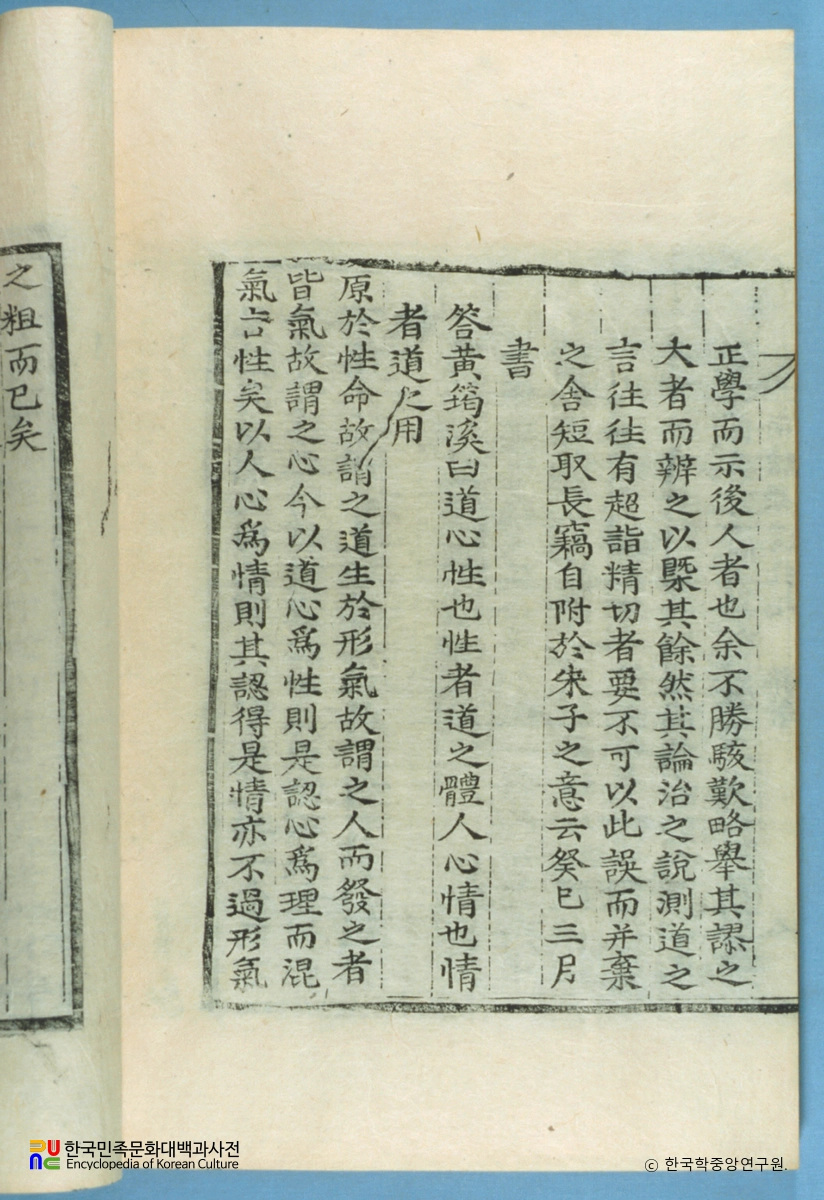 正學而示後人者也余不勝駭歎略舉其謬之
大者而辨之以槩其餘然其論治之說測道之
言往往有超詣精切者要不可以此誤而并棄
之舍短取長竊自附於朱子之意云癸巳三月
書
答黃筠溪曰道心性也性者道之體人心情也情
者道之用
原於性命故謂之道生於形氣故謂之人而發之者
皆氣故謂之心今以道心爲性則是認心爲理而混
氣言性矣以人心爲情則其認得是情亦不過形氣
之粗而已矣
한국민족문화대백과사전
Encyclopedia of Korean Culture
© 한국학중앙연구원.